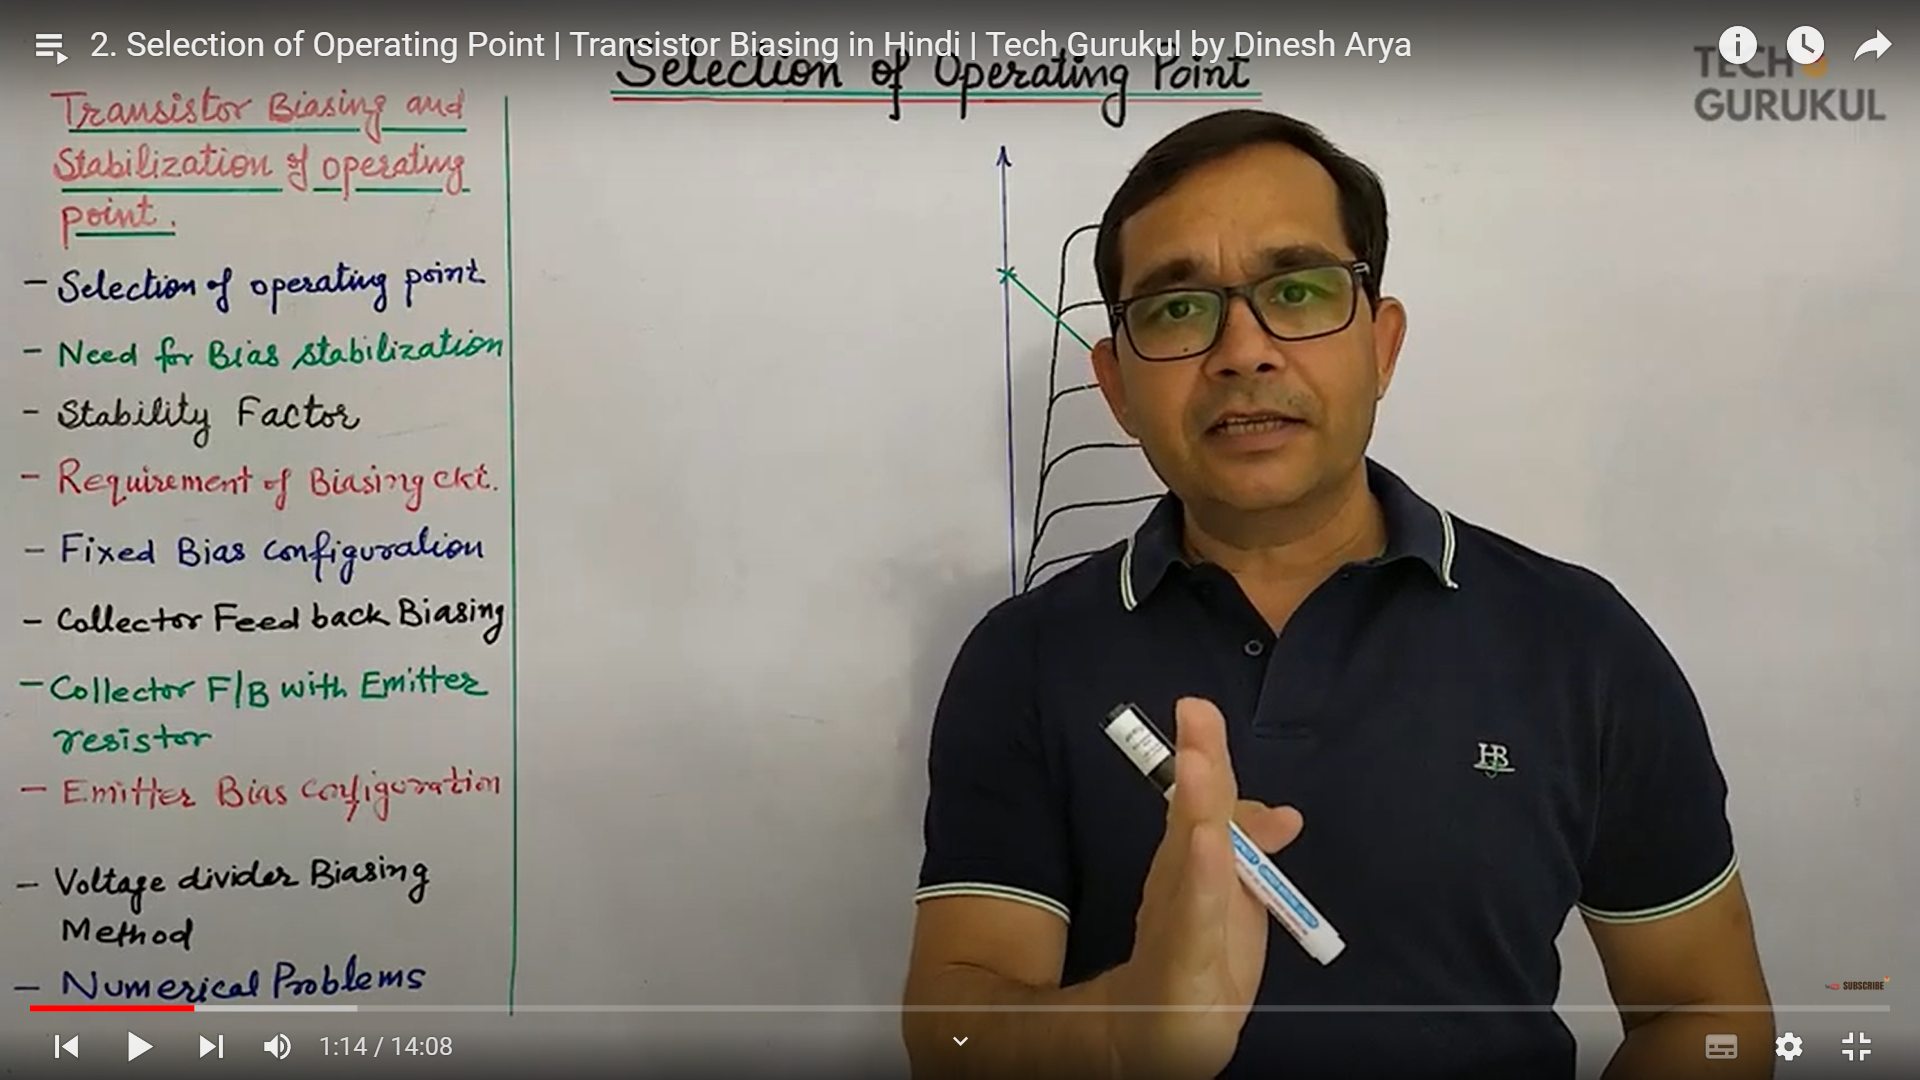 2. Selection of Operating Point | Transistor Biasing in Hindi | Tech Gurukul by Dinesh Arya
Selection of Operating Point
TECH
GURUKUL
Transistor Biasing and
Stabilization of operating
point.
- Selection of operating point
- Need for Bias stabilization
- Stability Factor
- Requirement of Biasing ckt.
- Fixed Bias configuration
- Collector Feed back Biasing
- Collector F/B with Emitter
resistor
- Emitter Bias configuration
- Voltage divider Biasing
Method
- Numerical Problems
HB
SUBSCRIBE
1:14 / 14:08